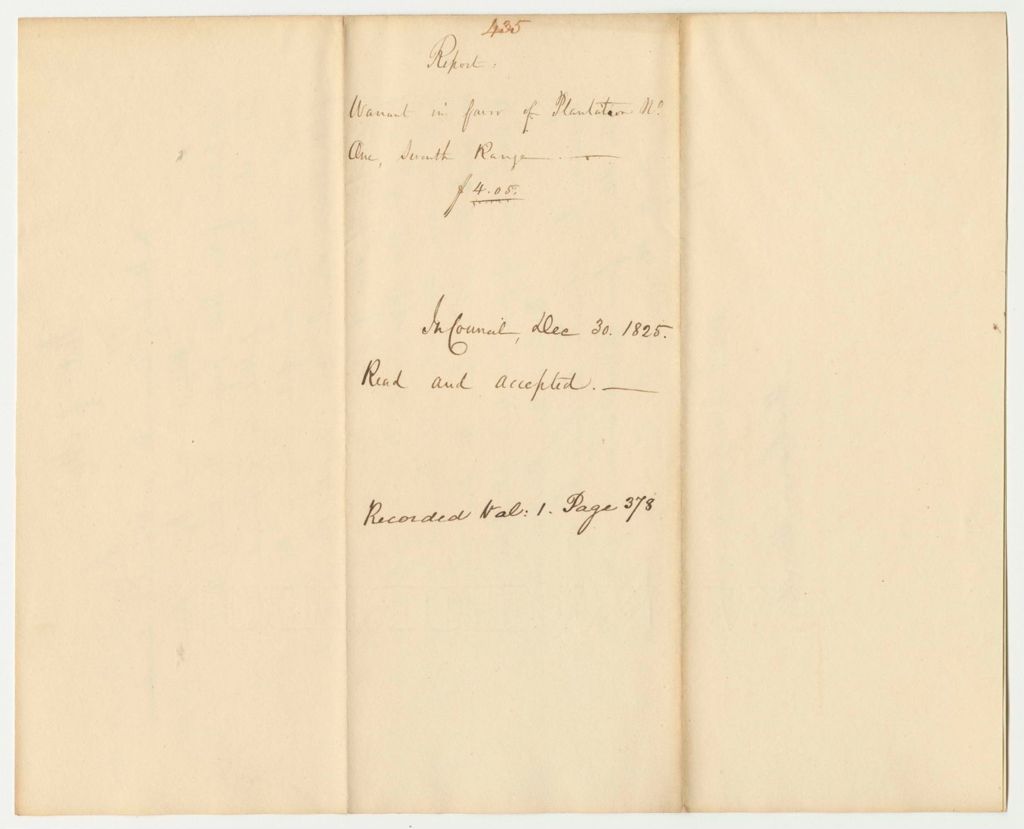 435
Report.
Warrant in favor of Plantation No.
One, Seventh Range. —
$ 4.05.
In Council, Dec 30. 1825.
Read and accepted. —
Recorded Vol: 1. Page 378